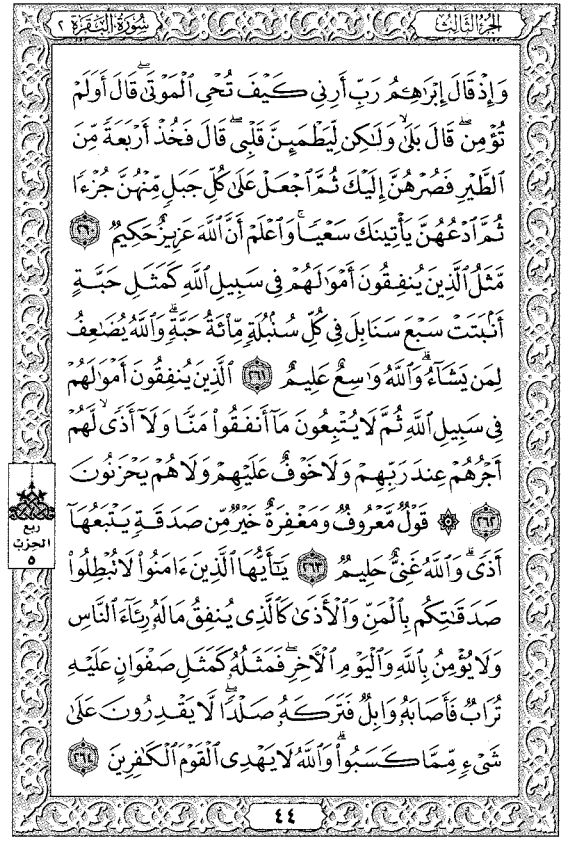 سُورَةُ البَقَرَةِ ٢
الجُزْءُ الثَّالِثُ
وَإِذْ قَالَ إِبْرَٰهِـۧمُ رَبِّ أَرِنِى كَيْفَ تُحْىِ ٱلْمَوْتَىٰ ۖ قَالَ أَوَلَمْ
تُؤْمِن ۖ قَالَ بَلَىٰ وَلَٰكِن لِّيَطْمَئِنَّ قَلْبِى ۖ قَالَ فَخُذْ أَرْبَعَةً مِّنَ
ٱلطَّيْرِ فَصُرْهُنَّ إِلَيْكَ ثُمَّ ٱجْعَلْ عَلَىٰ كُلِّ جَبَلٍ مِّنْهُنَّ جُزْءًا
ثُمَّ ٱدْعُهُنَّ يَأْتِينَكَ سَعْيًا ۚ وَٱعْلَمْ أَنَّ ٱللَّهَ عَزِيزٌ حَكِيمٌ ٢٦٠
مَّثَلُ ٱلَّذِينَ يُنفِقُونَ أَمْوَٰلَهُمْ فِى سَبِيلِ ٱللَّهِ كَمَثَلِ حَبَّةٍ
أَنۢبَتَتْ سَبْعَ سَنَابِلَ فِى كُلِّ سُنۢبُلَةٍ مِّا۟ئَةُ حَبَّةٍ ۗ وَٱللَّهُ يُضَٰعِفُ
لِمَن يَشَآءُ ۗ وَٱللَّهُ وَٰسِعٌ عَلِيمٌ ٢٦١ ٱلَّذِينَ يُنفِقُونَ أَمْوَٰلَهُمْ
فِى سَبِيلِ ٱللَّهِ ثُمَّ لَا يُتْبِعُونَ مَآ أَنفَقُوا۟ مَنًّا وَلَآ أَذًى ۙ لَّهُمْ
أَجْرُهُمْ عِندَ رَبِّهِمْ وَلَا خَوْفٌ عَلَيْهِمْ وَلَا هُمْ يَحْزَنُونَ
٢٦٢ ۞ قَوْلٌ مَّعْرُوفٌ وَمَغْفِرَةٌ خَيْرٌ مِّن صَدَقَةٍ يَتْبَعُهَآ
أَذًى ۗ وَٱللَّهُ غَنِىٌّ حَلِيمٌ ٢٦٣ يَٰٓأَيُّهَا ٱلَّذِينَ ءَامَنُوا۟ لَا تُبْطِلُوا۟
صَدَقَٰتِكُم بِٱلْمَنِّ وَٱلْأَذَىٰ كَٱلَّذِى يُنفِقُ مَالَهُۥ رِئَآءَ ٱلنَّاسِ
وَلَا يُؤْمِنُ بِٱللَّهِ وَٱلْيَوْمِ ٱلْءَاخِرِ ۖ فَمَثَلُهُۥ كَمَثَلِ صَفْوَانٍ عَلَيْهِ
تُرَابٌ فَأَصَابَهُۥ وَابِلٌ فَتَرَكَهُۥ صَلْدًا ۖ لَّا يَقْدِرُونَ عَلَىٰ
شَىْءٍ مِّمَّا كَسَبُوا۟ ۗ وَٱللَّهُ لَا يَهْدِى ٱلْقَوْمَ ٱلْكَٰفِرِينَ ٢٦٤
ربع
الحزب
٥
٤٤